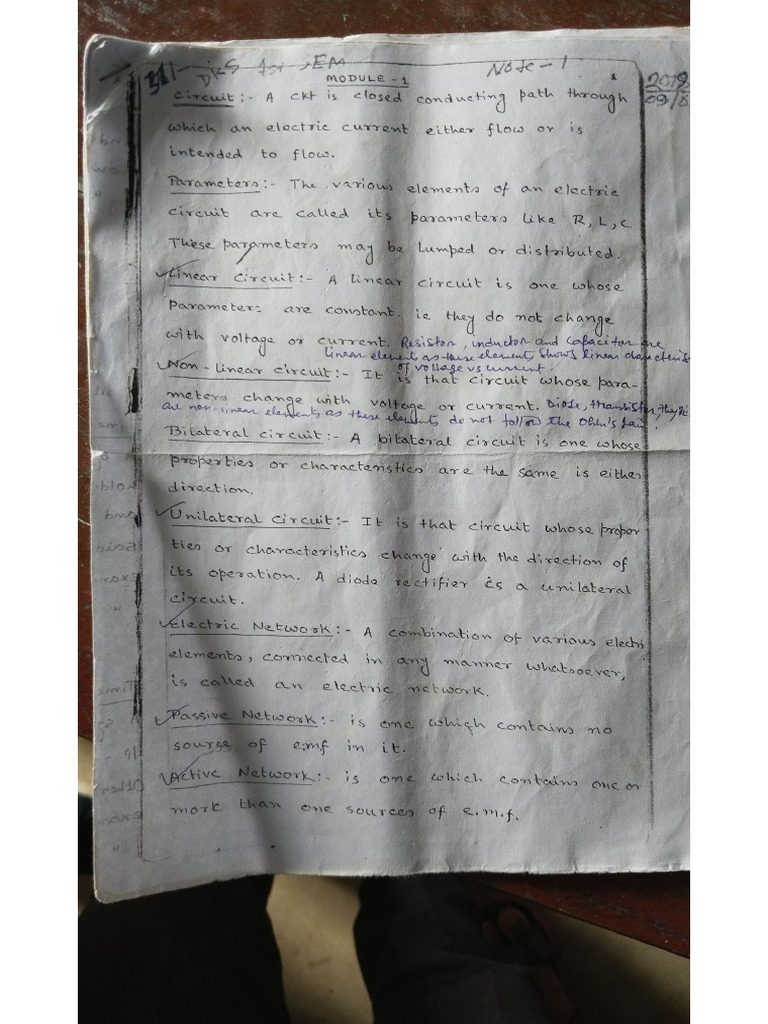 Note - 1
MODULE - 1
2019
09/8
Circuit :- A ckt is closed conducting path through
which an electric current either flow or is
intended to flow.
Parameters :- The various elements of an electric
circuit are called its parameters like R, L, C
These parameters may be lumped or distributed.
Linear Circuit :- A linear circuit is one whose
Parameters are constant. ie they do not change
with voltage or current. Resistor, inductor and Capacitor are
linear element as these element shows linear characteris
of voltage vs current.
Non-linear circuit :- It is that circuit whose para-
meters change with voltage or current. Diode, transistor,
are non-linear elements as these elements do not follow the Ohm's law.
Bilateral circuit :- A bilateral circuit is one whose
properties or characteristics are the same is either
direction.
Unilateral Circuit :- It is that circuit whose proper
ties or characteristics change with the direction of
its operation. A diode rectifier is a unilateral
circuit.
Electric Network :- A combination of various electri
elements, connected in any manner whatsoever,
is called an electric network.
Passive Network :- is one which contains no
source of emf in it.
Active Network :- is one which contains one or
more than one sources of e.m.f.